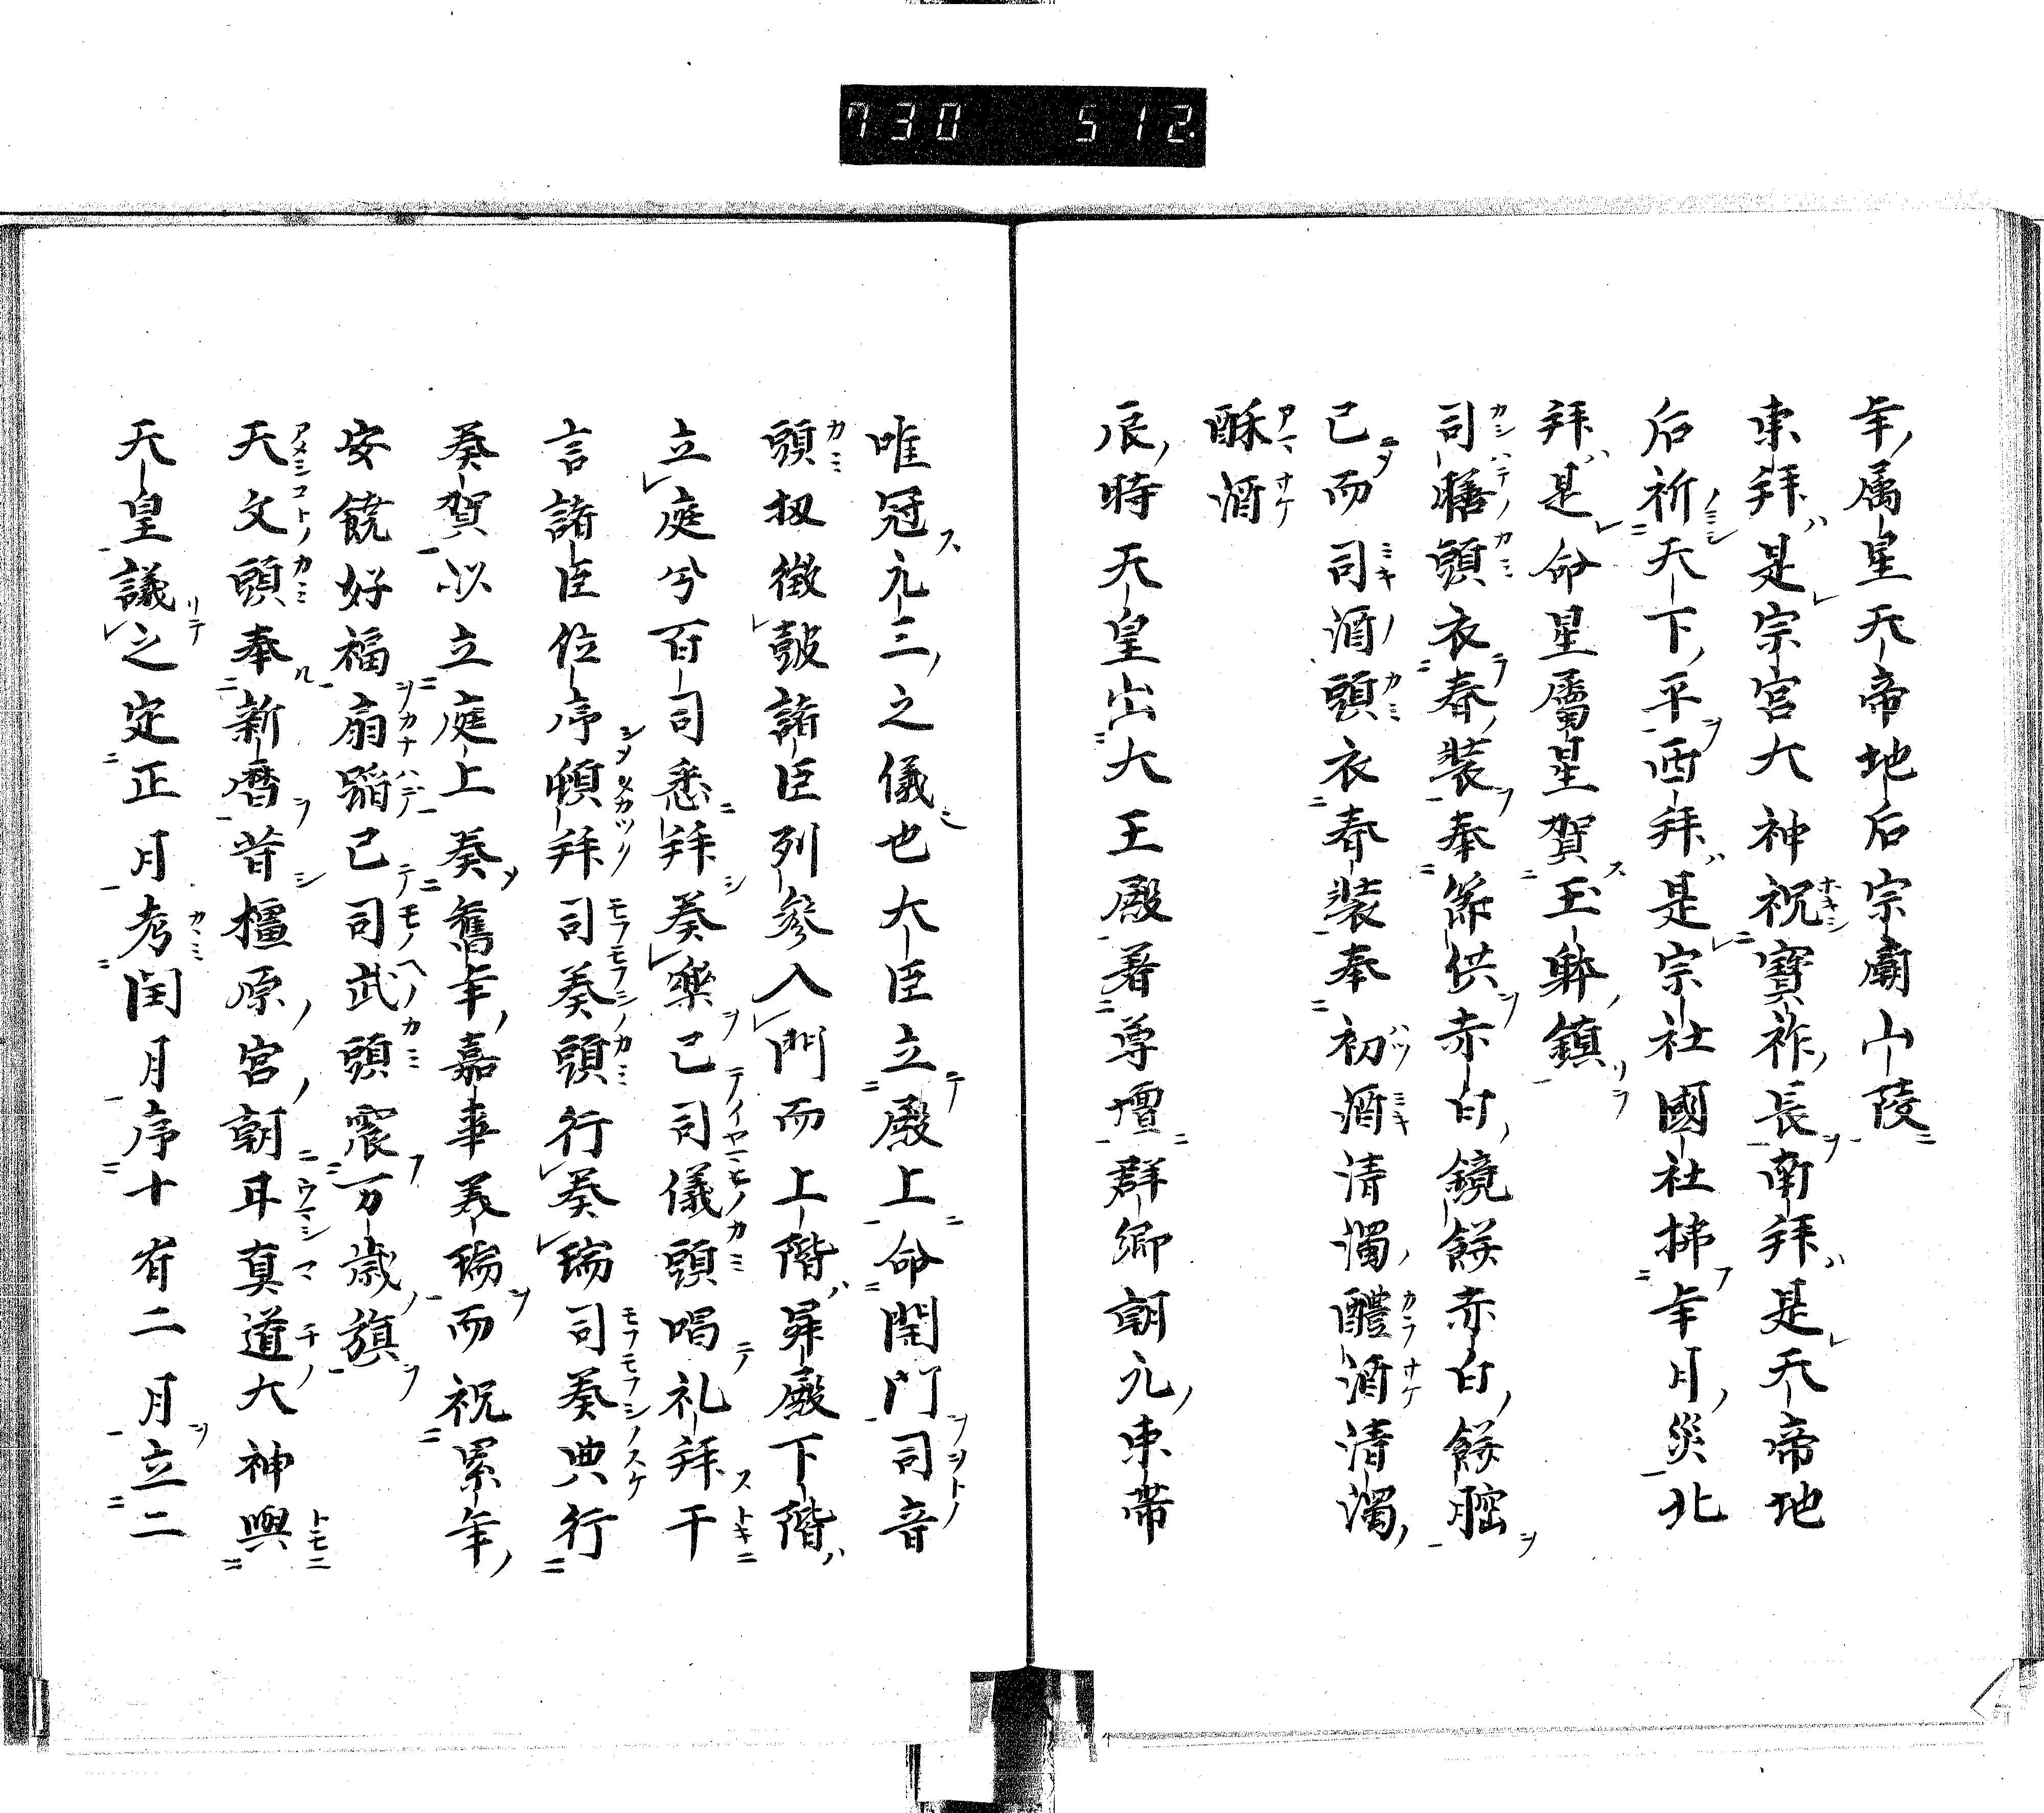 730 512.
年属星天帝地后宗廟山陵
東拜是宗宮大神祝寶祚長南拜是天帝地
后祈天下平西拜是宗社國社拂年月災北
拜是命星属星賀玉躰鎮
司膳頭衣春装奉餝供赤白鏡餅赤白餅
已而司酒頭衣春装奉初酒清濁醴酒清濁
酥酒
辰時天皇出大王殿着尊壇群卿朝元束帯
唯冠元三之儀也大臣立殿上命開門司音
頭扨徴皷諸臣列參入門而上階昇殿下階
立庭兮百司悉拜奏樂已司儀頭唱礼拜干
言諸臣位序頓拜司奏頭行奏瑞司奏典行
奏賀必立庭上奏舊年嘉華美瑞而祝累年
安饒好福扇蹈已司武頭震万歳旗
天文頭奉新暦昔橿原宮朝耳真道大神與
天皇議之定正月考閏月序十有二月立二